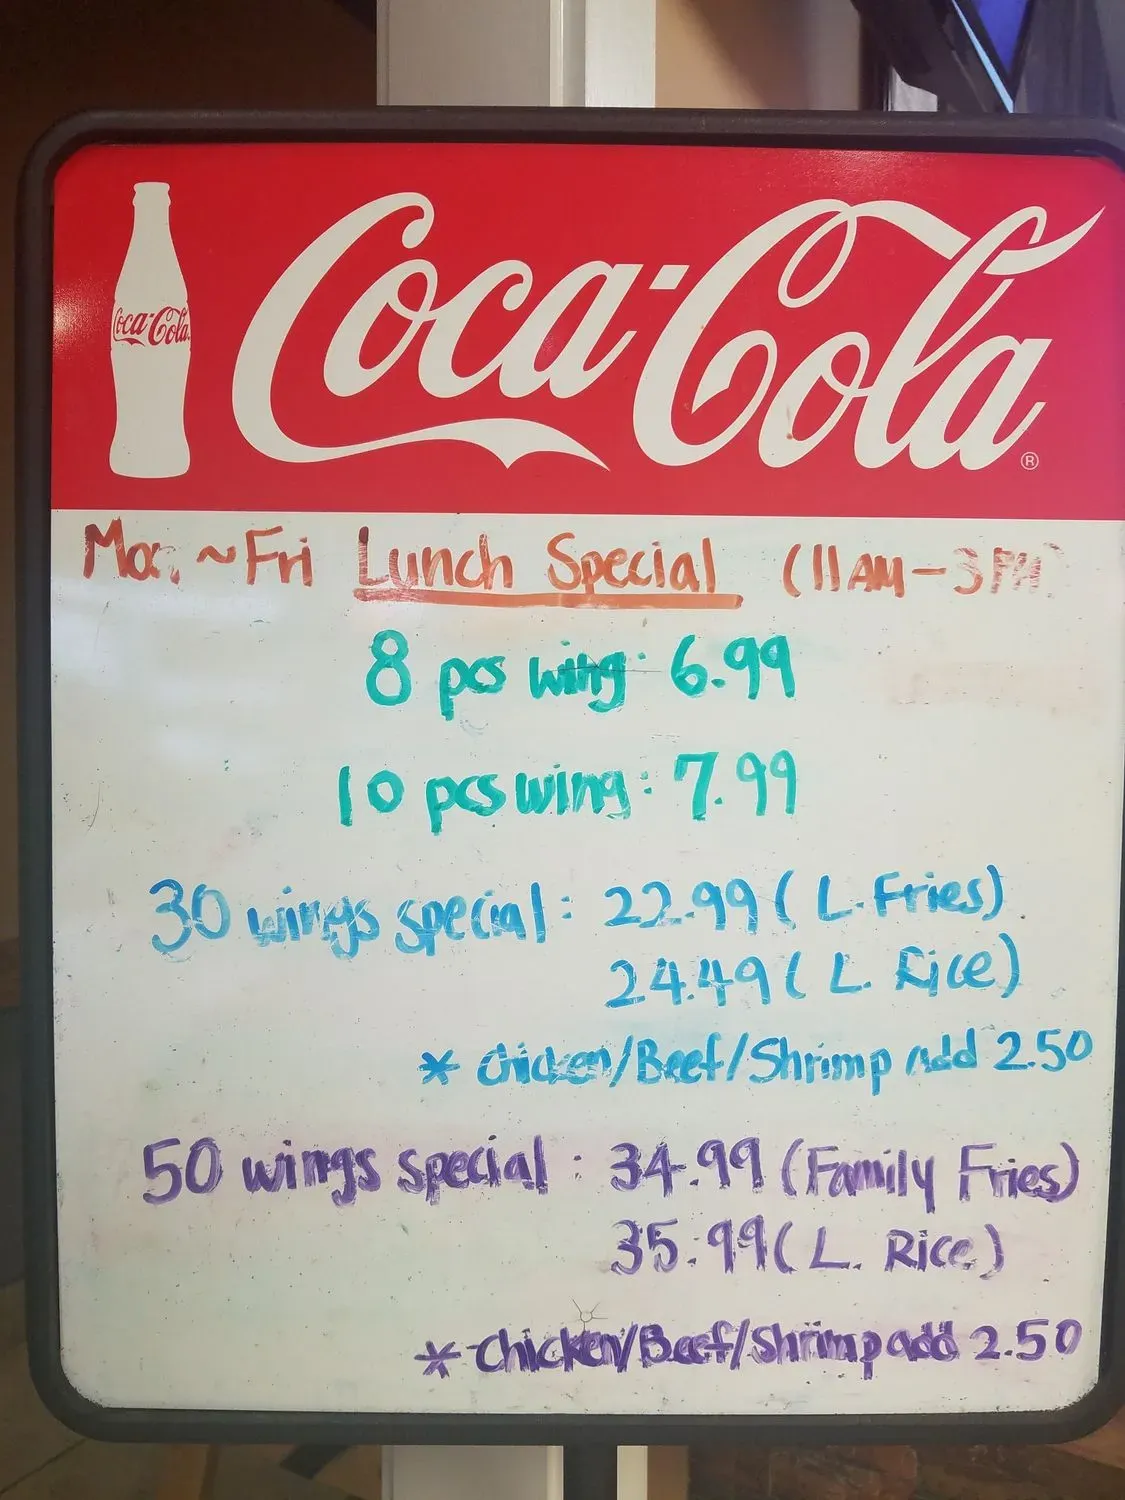 Coca-Cola
Coca-Cola®
Mon ~ Fri Lunch Special (11AM - 3PM)
8 pcs wing: 6.99
10 pcs wing: 7.99
30 wings special: 22.99 (L. Fries)
24.49 (L. Rice)
* Chicken/Beef/Shrimp add 2.50
50 wings special: 34.99 (Family Fries)
35.99 (L. Rice)
* Chicken/Beef/Shrimp add 2.50